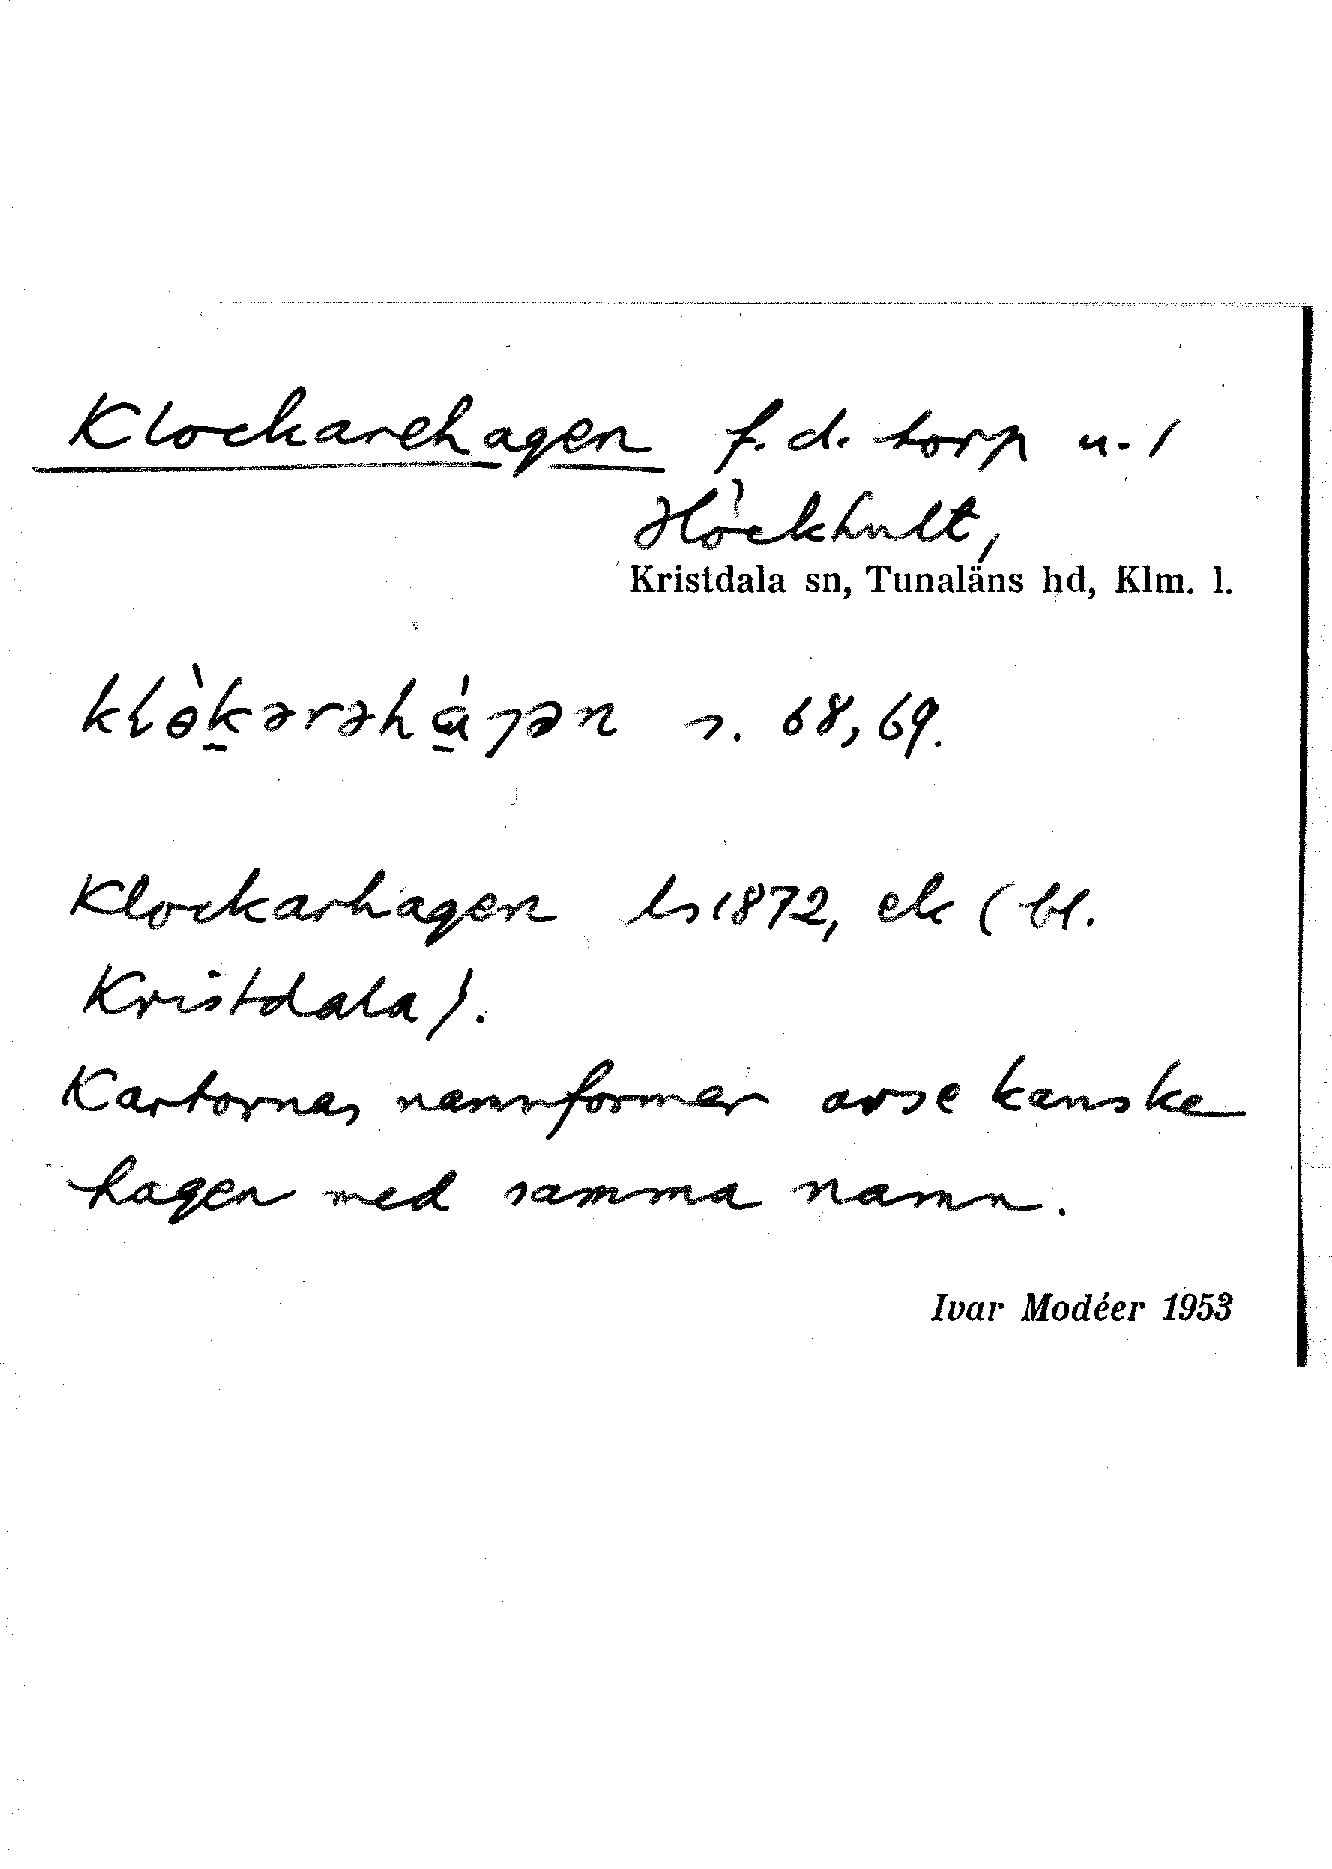 Klockarehagen f. d. torp u. /
Höckhult,
Kristdala sn, Tunaläns hd, Klm. l.
s. 68, 69.
Klockarhagen ls 1872, ek (bl.
Kristdala).
Kartornas namnformer avse kanske
hagen med samma namn.
Ivar Modéer 1953